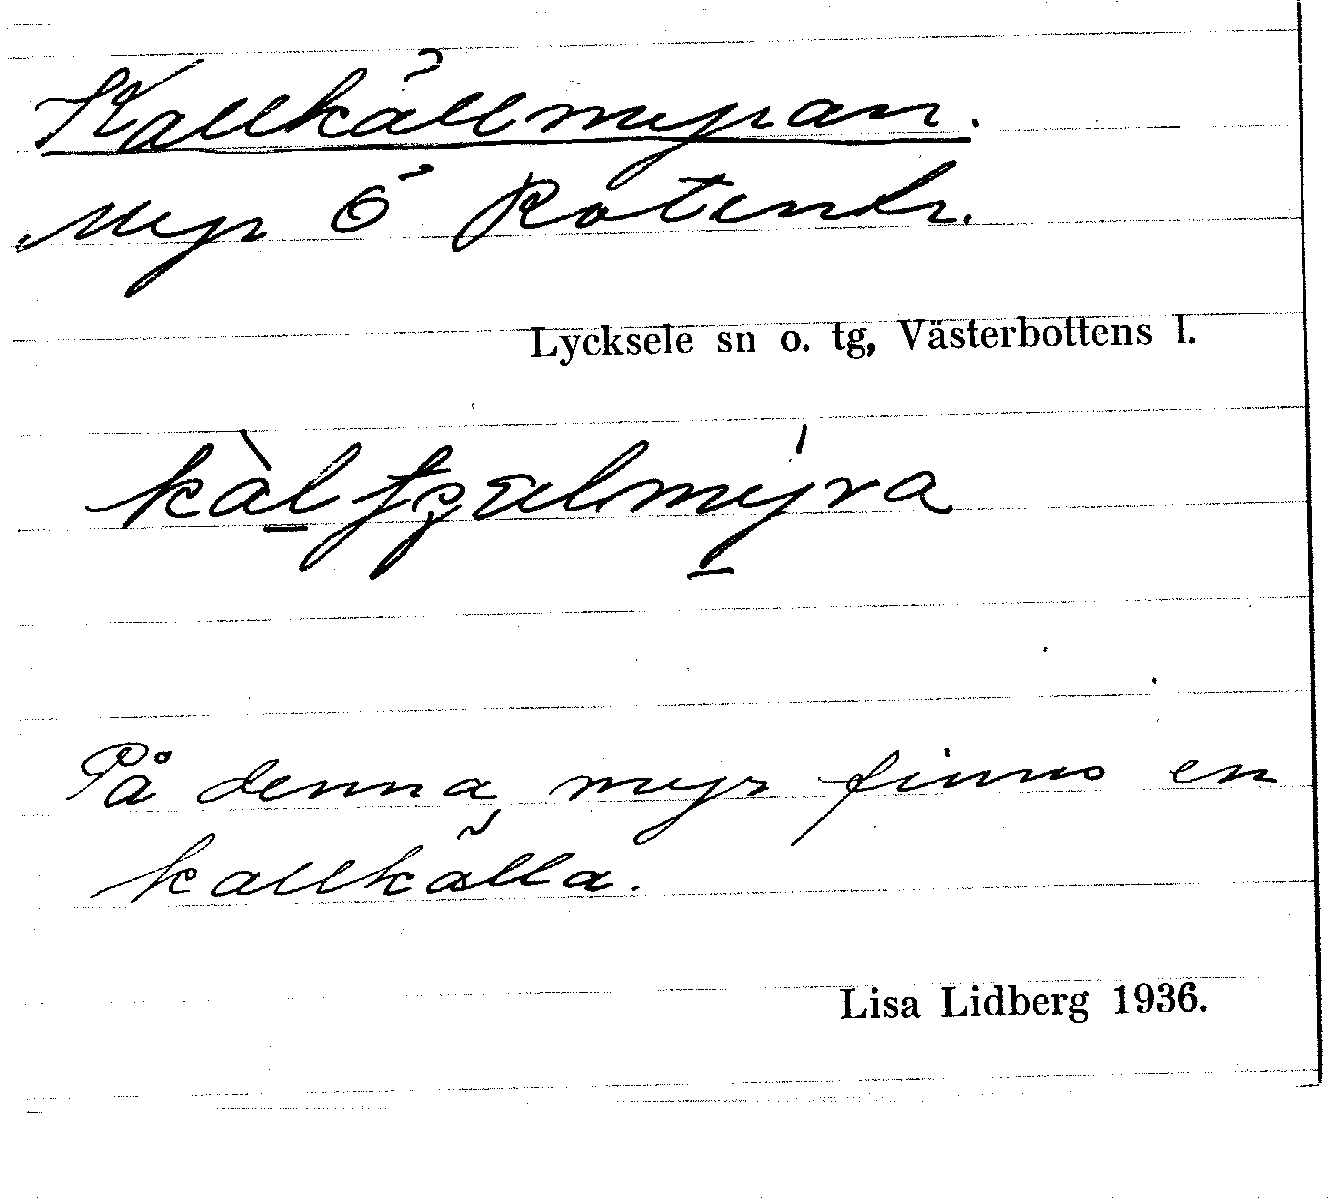 Kallkällmyran.
Myr Ö Rotenh.
Lycksele sn o. tg, Västerbottens l.
På denna myr finns en
kallkälla.
Lisa Lidberg 1936.